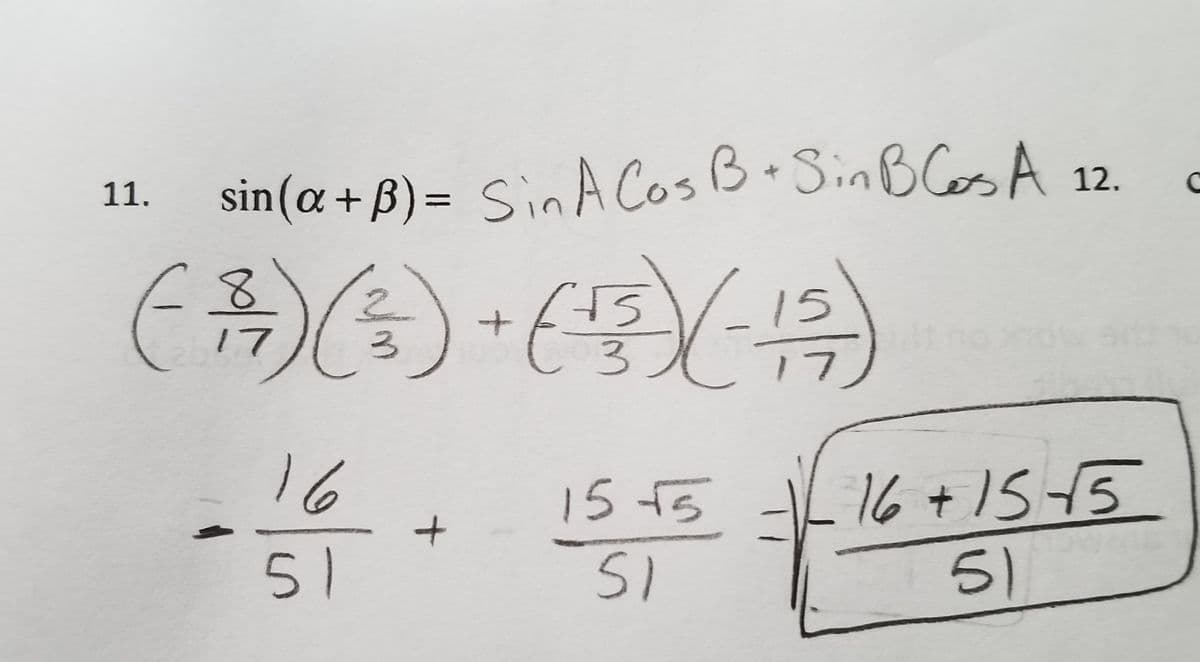 11. sin(α + β) = Sin A Cos B + Sin B Cos A 12. c
(- 8/17)(2/3) + (-√5/3)(- 15/17)
- 16/51 + 15√5/51 = -16 + 15√5/51